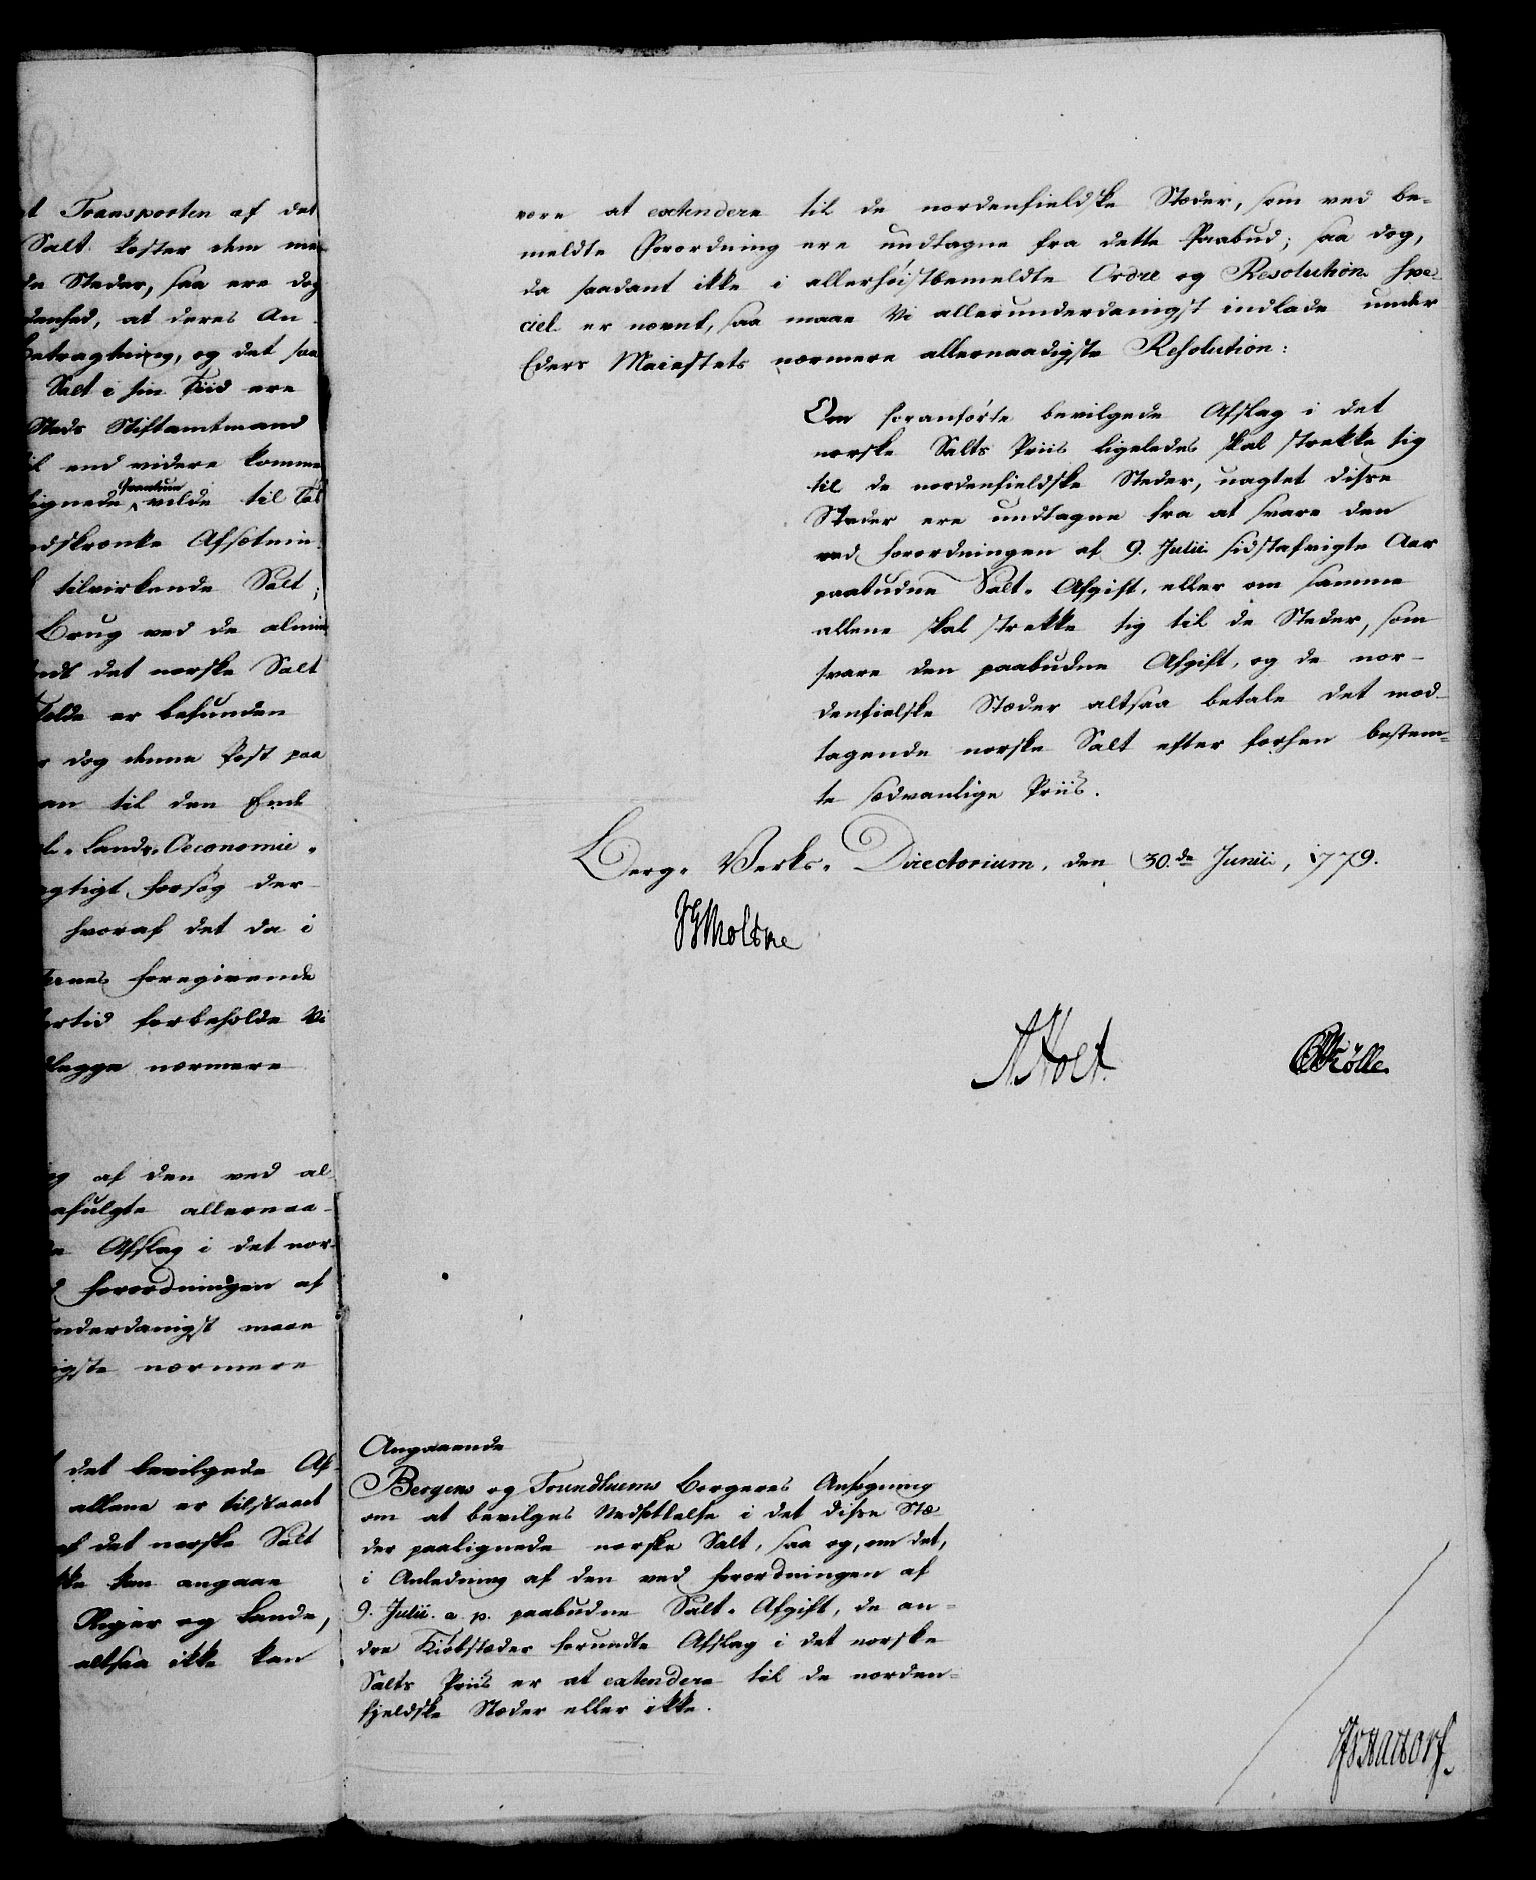 Transporten af det
Salt koster dem me-
Steder, saa ere dog
at deres An-
betragtning, og det saa
Salt i sin Tiid ere
Steds Stiftamtmand
end videre komme
Qvantum
vilde til
Afsætnin-
tilvirkende Salt;
Brug ved de almin-
det norske Salt
er befunden
dog denne Post paa
til den Ende
Land-Oeconomie-
forsøg der-
hvoraf det da i
foregivende
forbeholde Vi
nærmere
af den ved al-
allernaa-
Afslag i det nor-
Forordningen af
maae
nærmere
det bevilgede Af-
allene er tilstaaet
af det norske Salt
kan angaae
Riger og Lande,
altsaa ikke kan
være at extendere til de nordenfieldske Stæder, som ved be-
meldte Forordning ere undtagne fra dette Paabud; saa dog,
da saadant ikke i allerhøistbemeldte Ordre og Resolution spe-
ciel er nævnt, saa maae Vi allerunderdanigst indlade under
Eders Maiestets nærmere allernaadigste Resolution:
Om foranførte bevilgede Afslag i det
norske Salts Priis ligeledes skal strække sig
til de nordenfieldske Steder, uagtet disse
Stæder ere undtagne fra at svare den
ved Forordningen af 9. Julii sidstafvigte Aar
paabudne Salt-Afgift, eller om samme
allene skal strække sig til de Steder, som
svare den paabudne Afgift, og de nor-
denfielske Stæder altsaa betale det mod-
tagende norske Salt efter forhen bestem-
te sædvanlige Priis.
Berg-Verks-Directorium, den 30.de Junii, 1779.
Moltke
Holt.
Kölle.
Angaaende
Bergens og Trundhiems Borgeres Ansøgning
om at bevilges Nedsættelse i det disse Stæ-
der paalignede norske Salt, saa og, om det,
i Anledning af den ved Forordningen af
9. Julii a. p. paabudne Salt-Afgift, de an-
dre Kiøbstæder forundte Afslag i det norske
Salts Priis er at extendere til de norden-
fjeldske Stæder eller ikke.